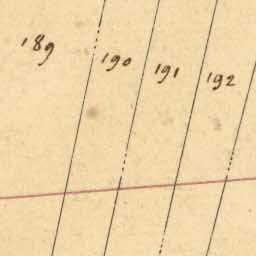 189
190
191
192